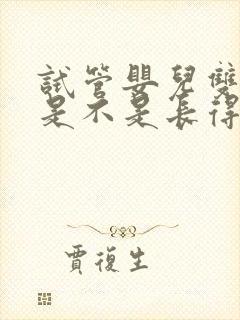 試管嬰兒雙
是不是長得
賈復生